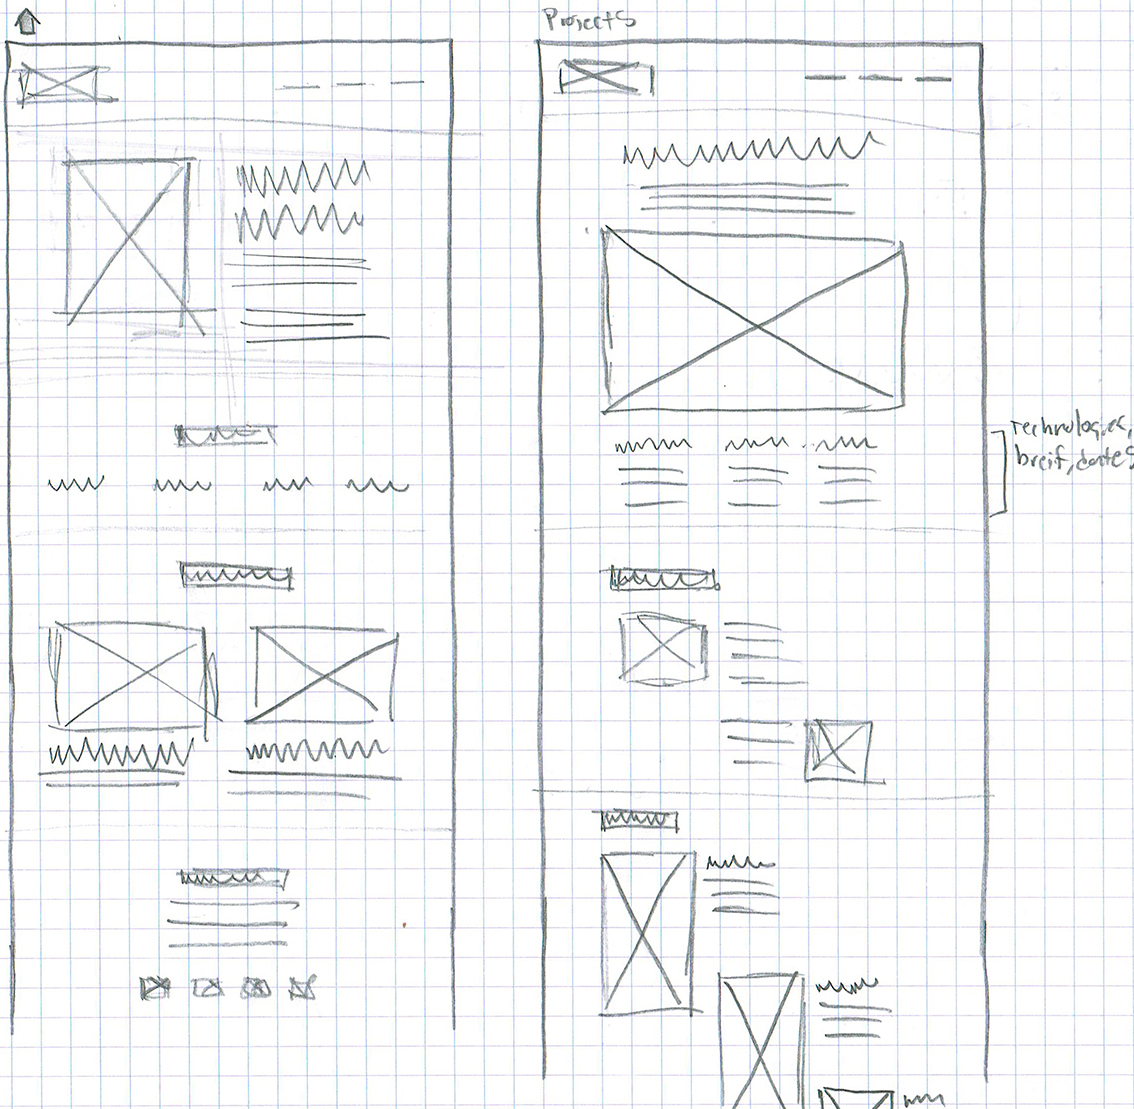 Projects
Technologies,
breif, dates